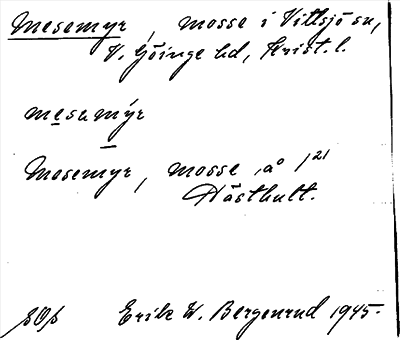 Mesemyr, mosse i Vittsjö sn,
V. Göinge hd, Krist. l.
mesemýr
Mosemyr, mosse, å 1²¹
Västhult.
Erik W. Bergenrud 1945.